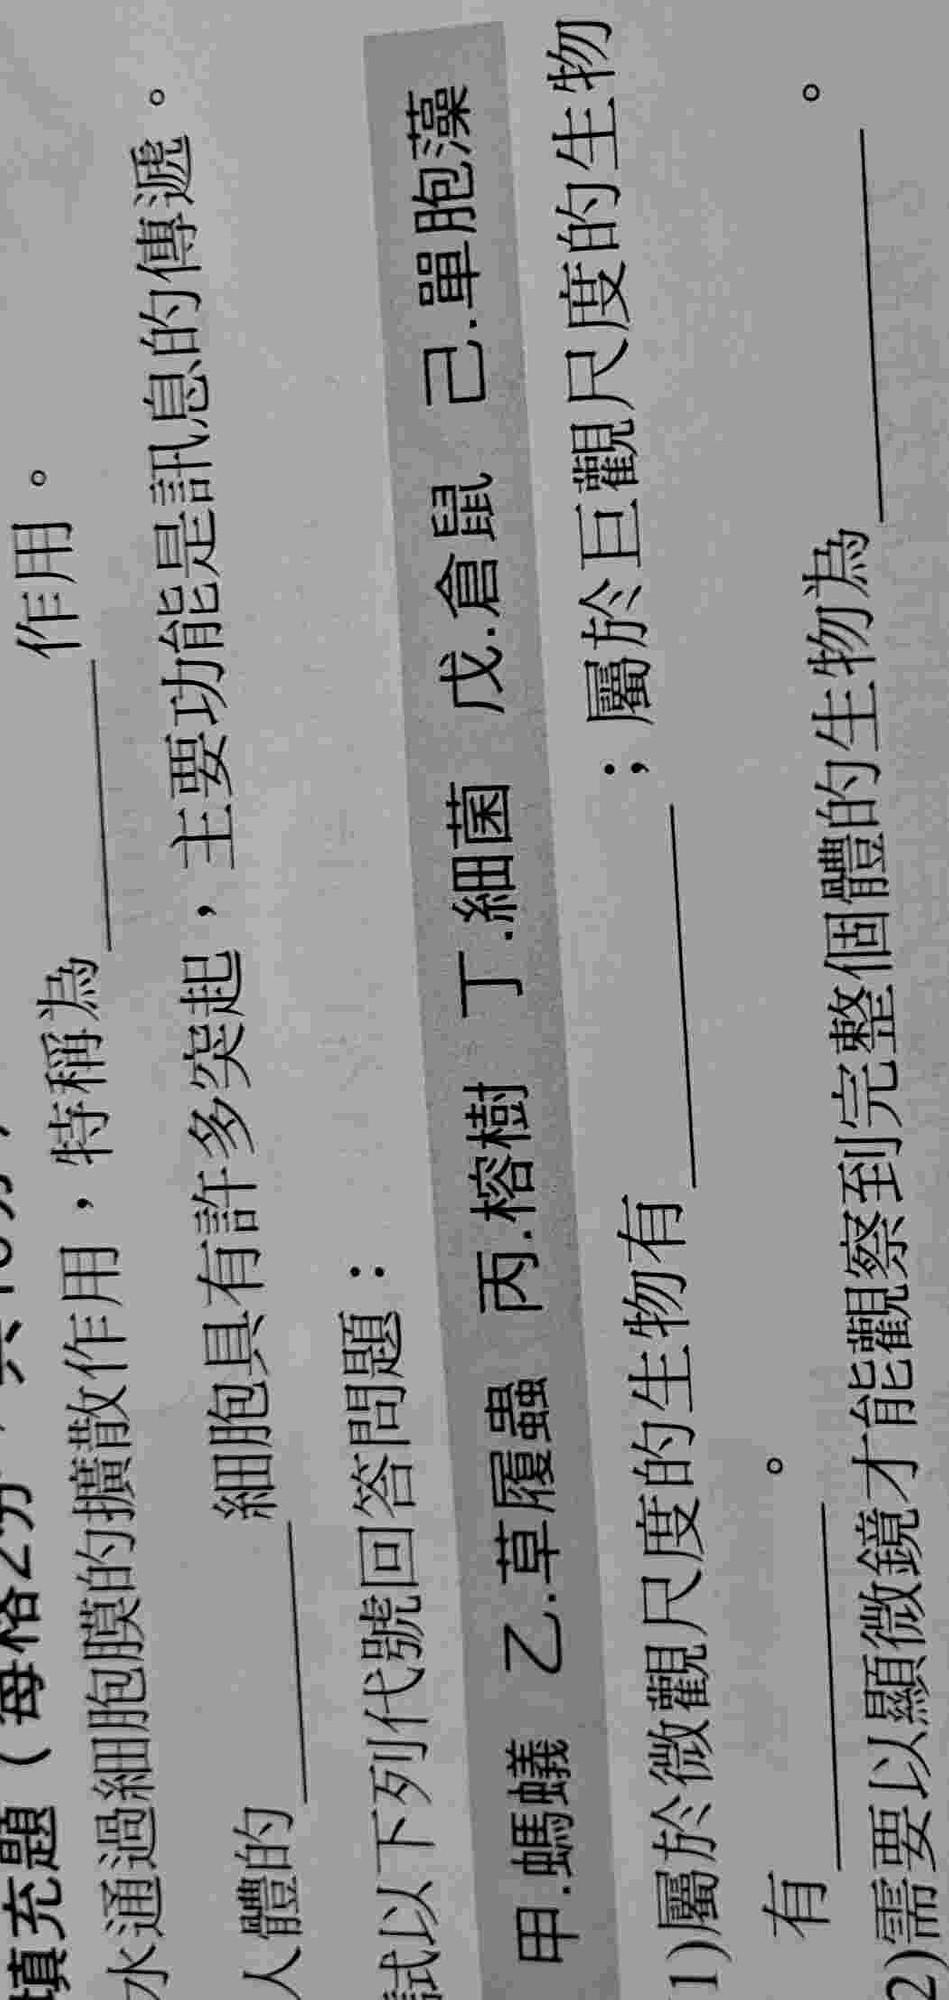 填充題（每格2分，共16分）
水通過細胞膜的擴散作用，特稱為________作用。
人體的________細胞具有許多突起，主要功能是訊息的傳遞。
試以下列代號回答問題：
甲.螞蟻 乙.草履蟲 丙.榕樹 丁.細菌 戊.倉鼠 己.單胞藻
1)屬於微觀尺度的生物有________；屬於巨觀尺度的生物
有________。
2)需要以顯微鏡才能觀察到完整個體的生物為________。